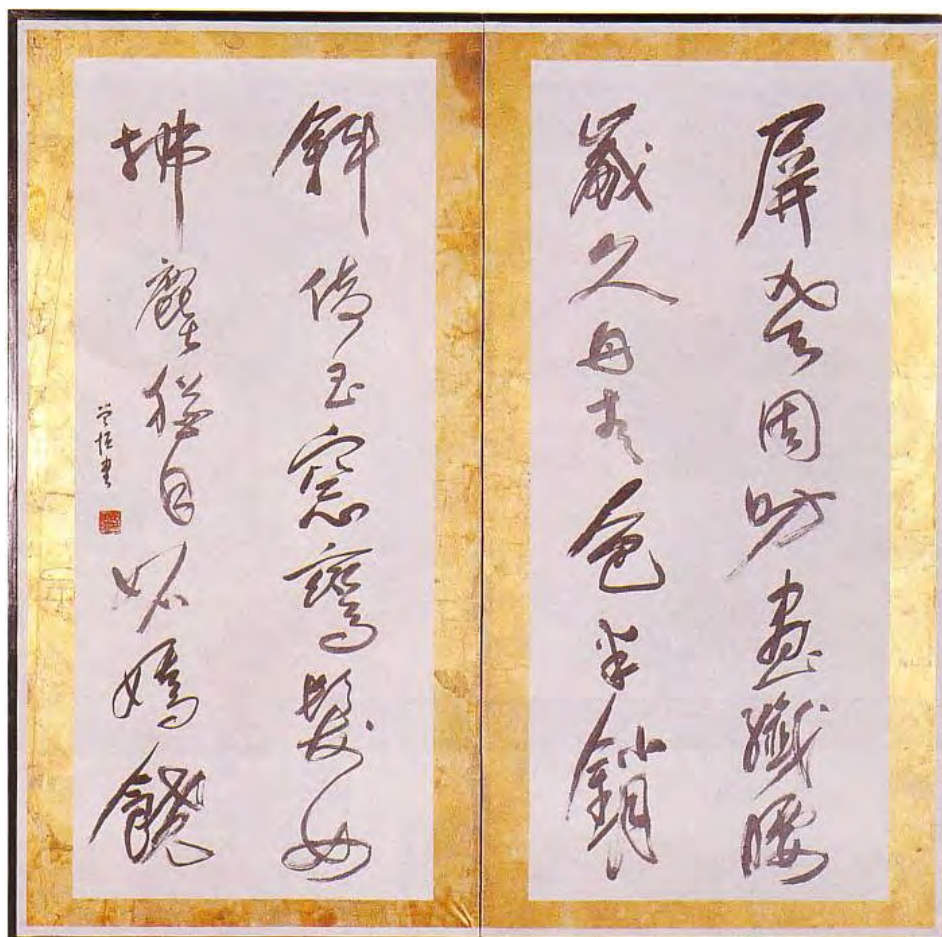 屏風周昉畫纖腰
歲久丹青色半銷
斜倚玉窓鸞髮女
拂塵猶自妒嬌饒
書